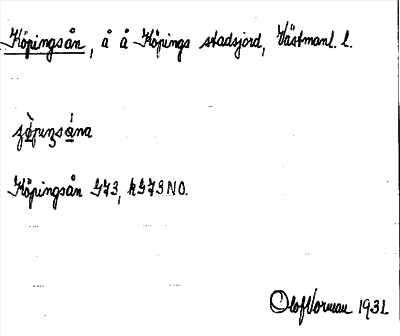 Köpingsån, å å Köpings stadsjord, Västmanl. l.
Köpingsån G73, kG73NO.
Olof Vorman 1931